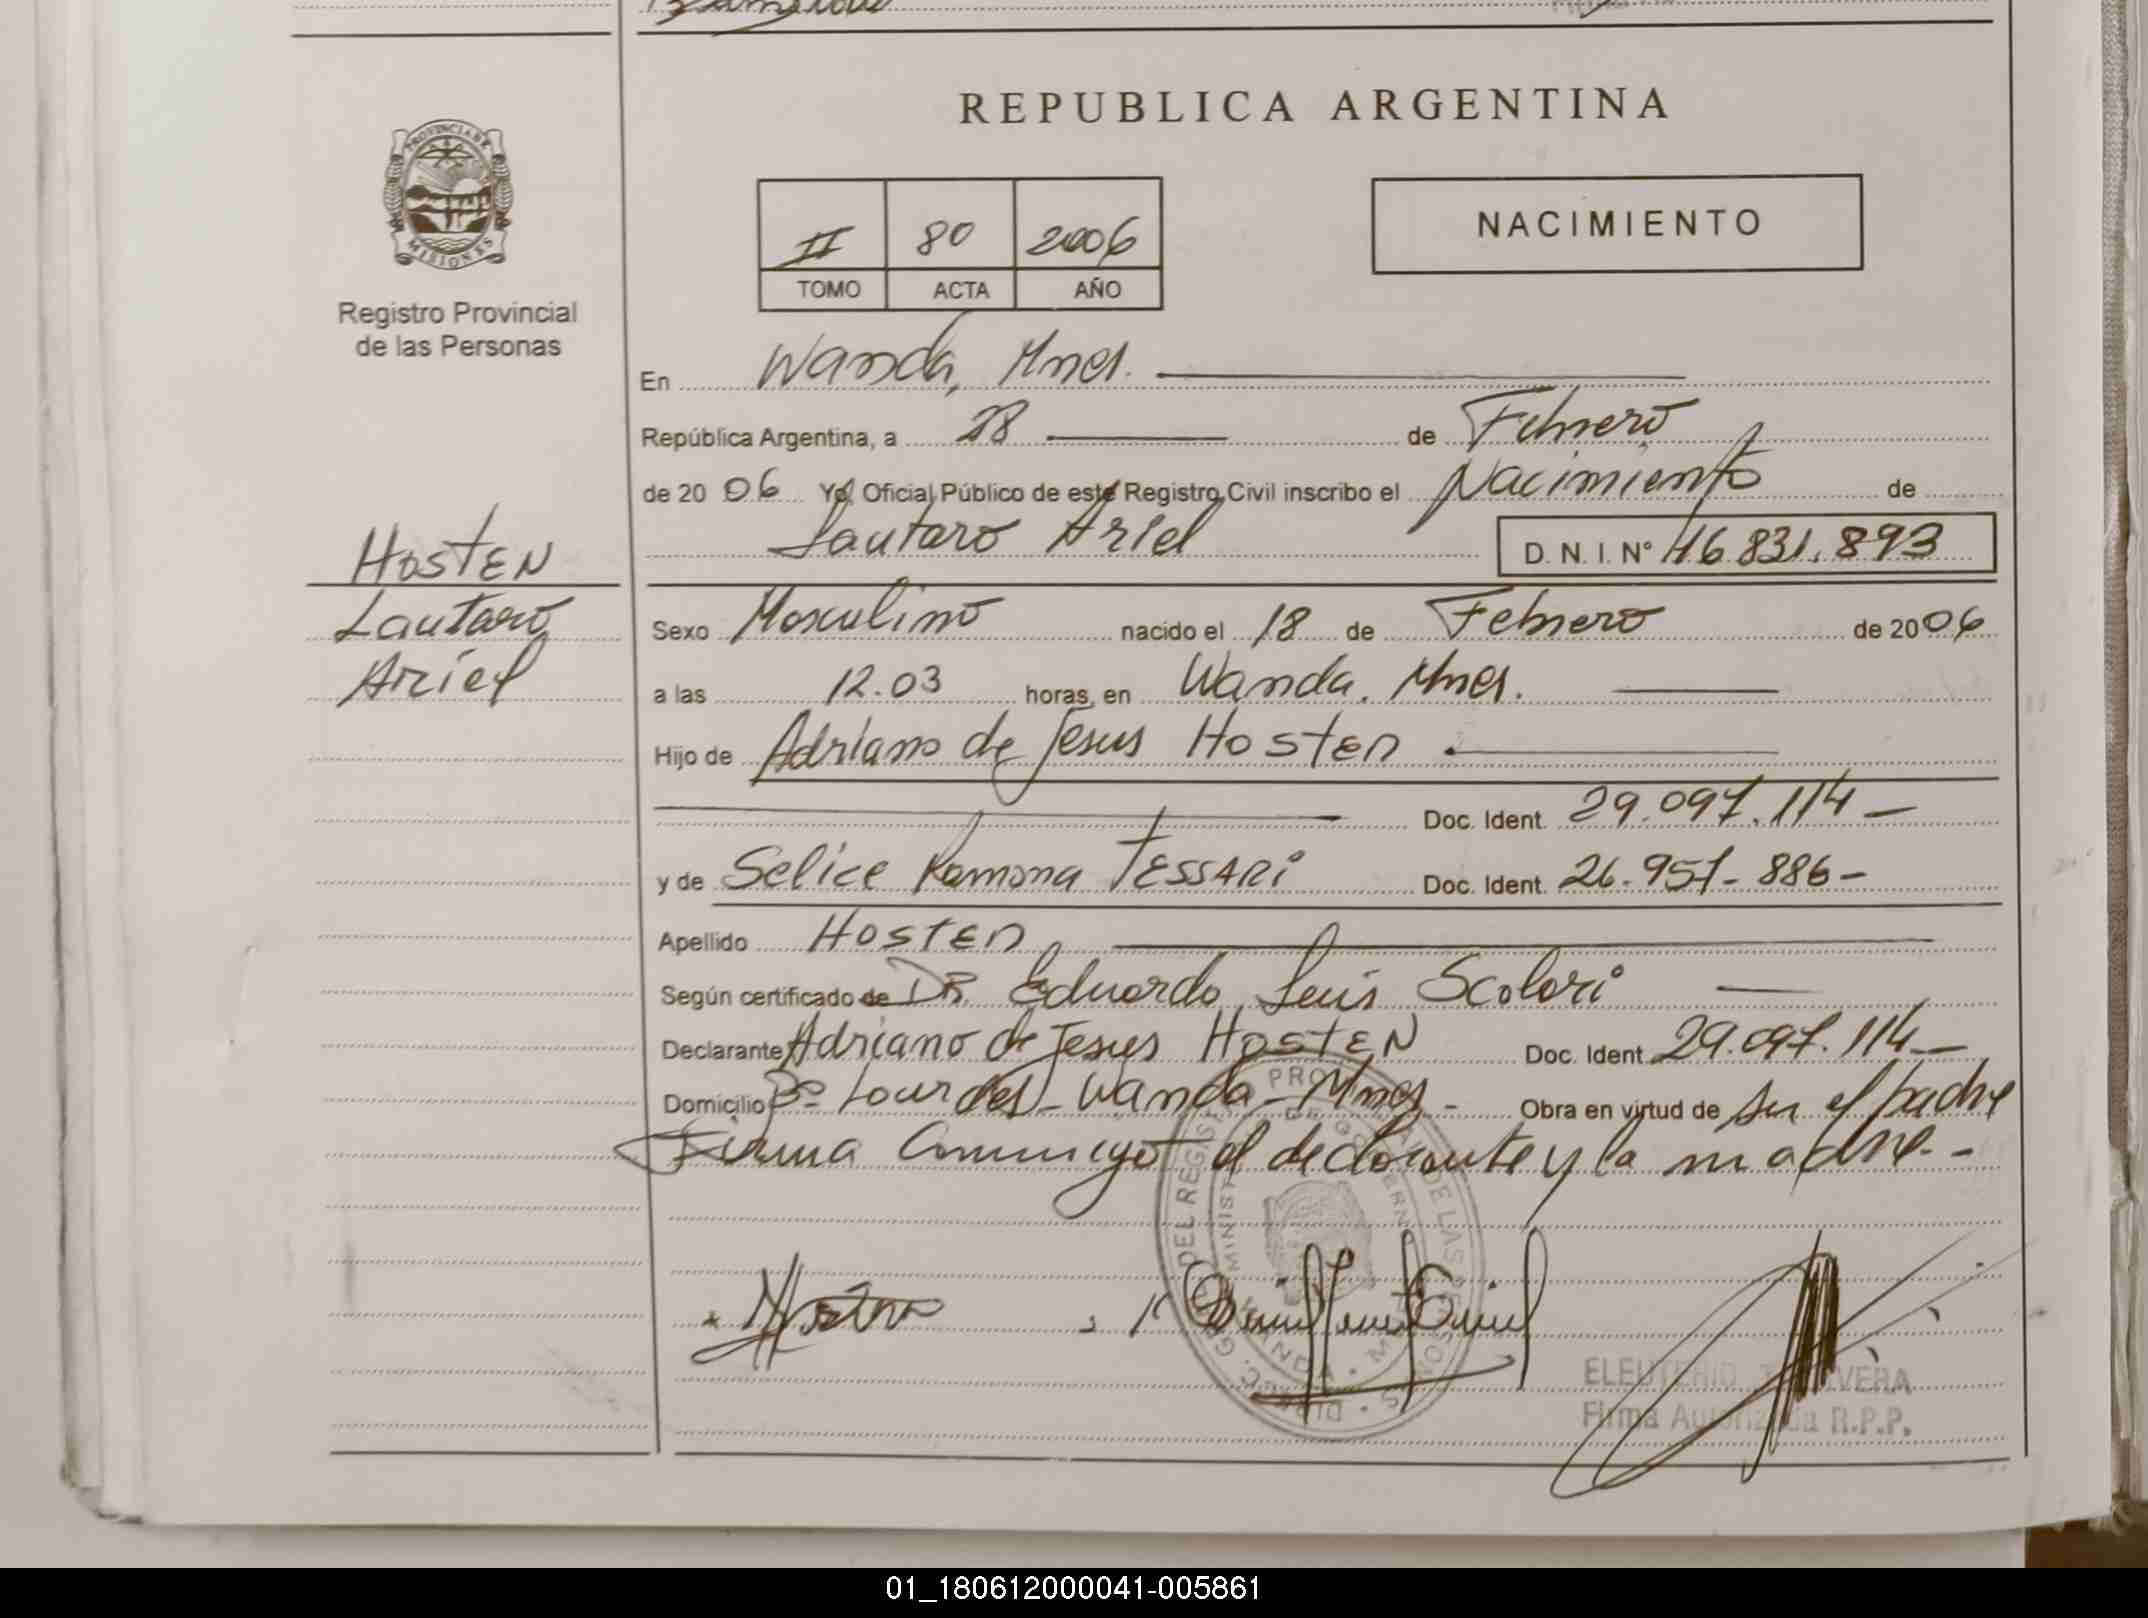 REPUBLICA ARGENTINA
PROVINCIA DE
MISIONES
Registro Provincial
de las Personas
II 80 2006
TOMO ACTA AÑO
NACIMIENTO
En Wanda, Mnes.
República Argentina, a 28 de Febrero
de 20 06 Yo, Oficial Público de este Registro Civil inscribo el Nacimiento de
Lautaro Ariel D. N. I. N° 46.831.893
HOSTEN
Lautaro
Ariel
Sexo Masculino nacido el 18 de Febrero de 2006
a las 12.03 horas, en Wanda. Mnes.
Hijo de Adriano de Jesus Hosten
Doc. Ident. 29.097.114-
y de Selice Ramona TESSARi Doc. Ident. 26.957-886-
Apellido HOSTEN
Según certificado de DR. Eduardo Luis Scolari
Declarante Adriano de Jesus HOSTEN Doc. Ident. 29.097.114-
Domicilio Bº Lourdes - Wanda - Mnes - Obra en virtud de ser el padre
Firma Conmigo el declarante y la madre.-
ELEUTERIO
Firma Autorizada R.P.P.
01_180612000041-005861